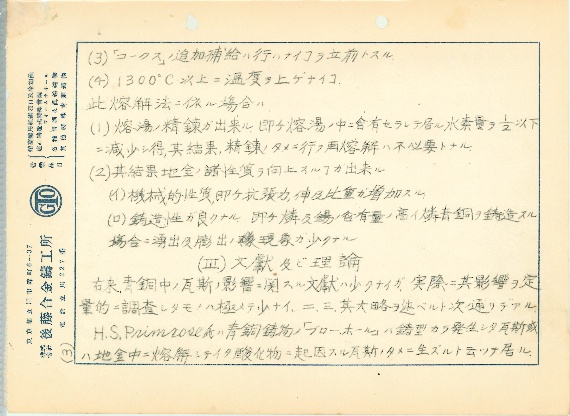 (3)「コークス」ノ追加補給ハ行ハナイコヲ立前トスル
(4) 1300°C以上ニ温度ヲ上ゲナイコ
此熔解法ニ依ル場合ハ
(1) 熔湯ノ精錬ガ出来ル 即チ熔湯ノ中ニ含有セラレテ居ル水素量ヲ½以下
ニ減少シ得、其結果、精錬ノタメニ行フ再熔解ハ不必要トナル
(2) 其結果地金ノ諸性質ヲ向上スルコガ出来ル
(イ) 機械的性質即チ抗張力、伸及比重ガ増加スル
(ロ) 鋳造性ガ良クナル 即チ燐及錫ノ含有量ノ高イ燐青銅ヲ鋳造スル
場合ニ湧出及膨出ノ現象ガ少クナル
(Ⅲ) 文献及ビ理論
古来、青銅中ノ瓦斯ノ影響ニ関スル文献ハ少クナイガ、実際ニ其影響ヲ定
量的ニ調査シタモノハ極メテ少ナイ、二、三、其大略ヲ述ベルト次ノ通リデアル
H.S. Primrose氏ハ青銅鋳物ノ「ブローホール」ハ鋳型カラ発生シタ瓦斯或
ハ地金中ニ熔解シテイタ酸化物ニ起因スル瓦斯ノタメニ生ズルト云ツテ居ル
(3)
後藤合金鋳工所